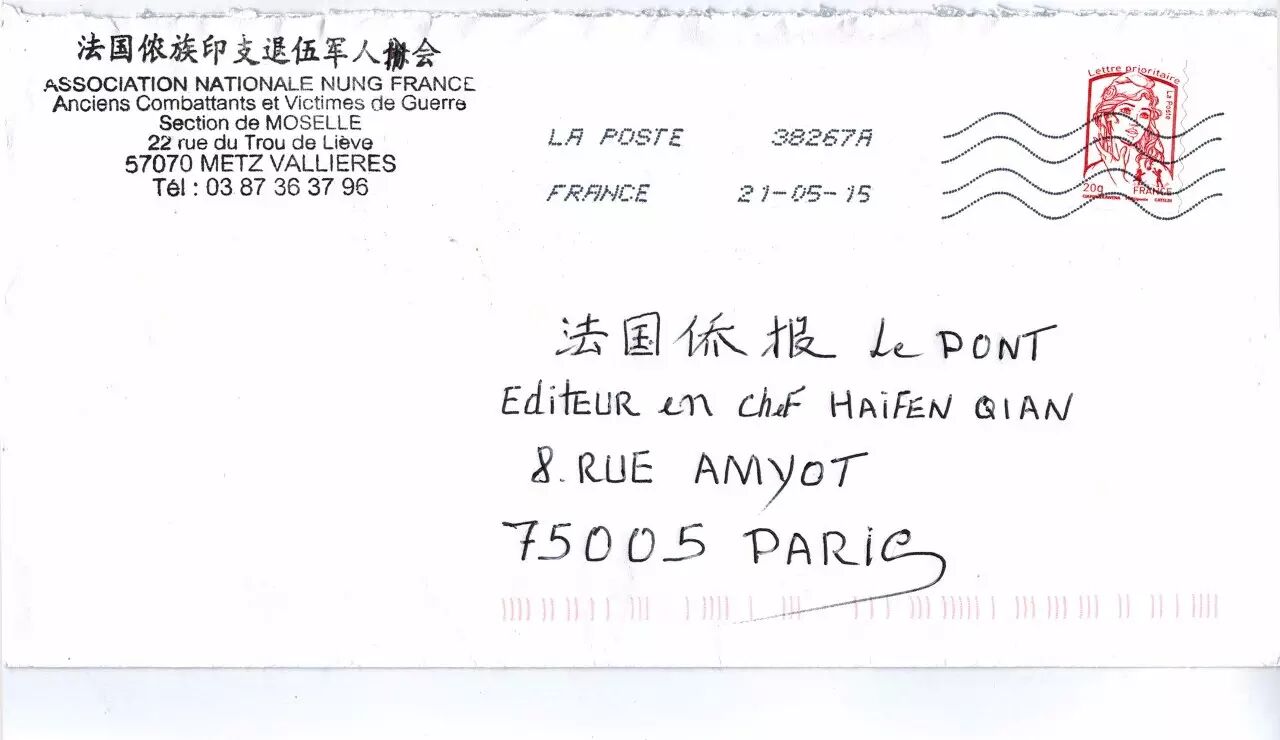 法国侬族印支退伍军人协会
ASSOCIATION NATIONALE NUNG FRANCE
Anciens Combattants et Victimes de Guerre
Section de MOSELLE
22 rue du Trou de Liève
57070 METZ VALLIERES
Tél : 03 87 36 37 96
LA POSTE 38267A
FRANCE 21-05-15
Lettre prioritaire
La Poste
20g FRANCE
法国侨报 Le PONT
EditEUR en chef HAiFEN QIAN
8. RUE AMYOT
75005 PARiS